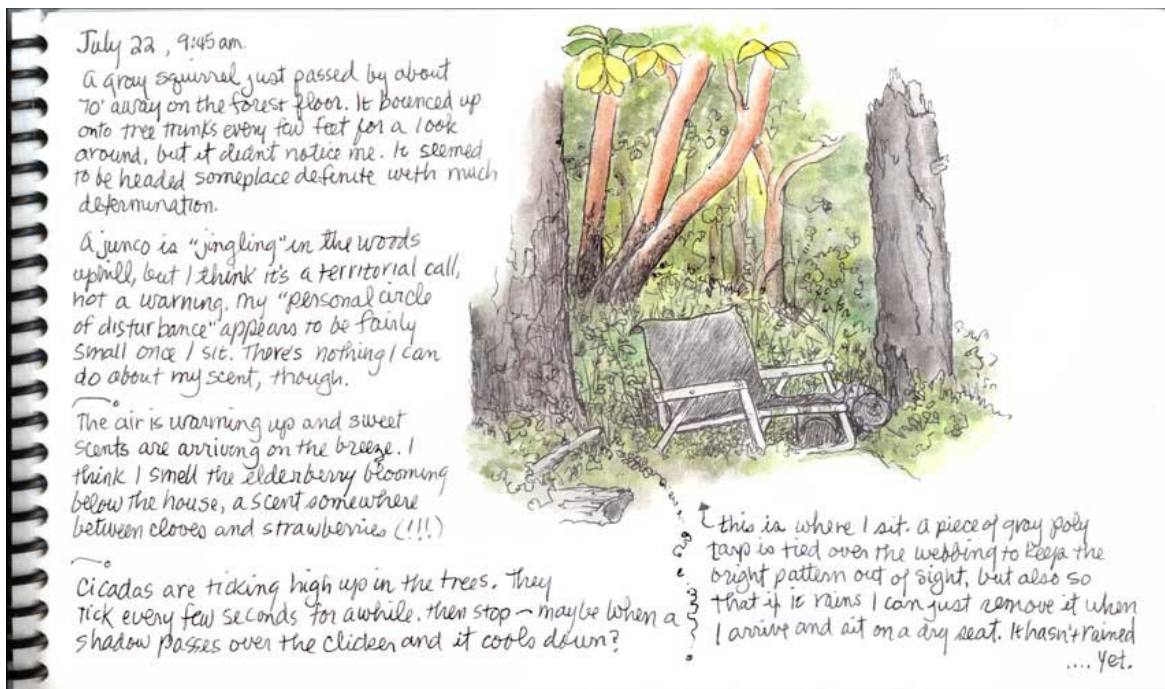 July 22, 9:45 am.
A gray squirrel just passed by about
70' away on the forest floor. It bounced up
onto tree trunks every few feet for a look
around, but it didn't notice me. It seemed
to be headed someplace definite with much
determination.
A junco is "jingling" in the woods
uphill, but I think it's a territorial call,
not a warning. My "personal circle
of disturbance" appears to be fairly
small once I sit. There's nothing I can
do about my scent, though.
The air is warming up and sweet
scents are arriving on the breeze. I
think I smell the elderberry blooming
below the house, a scent somewhere
between cloves and strawberries (!!!)
Cicadas are ticking high up in the trees. They
tick every few seconds for awhile. then stop ~ maybe when a
shadow passes over the clicker and it cools down?
this is where I sit. A piece of gray poly
tarp is tied over the webbing to keep the
bright pattern out of sight, but also so
that if it rains I can just remove it when
I arrive and sit on a dry seat. It hasn't rained
.... yet.